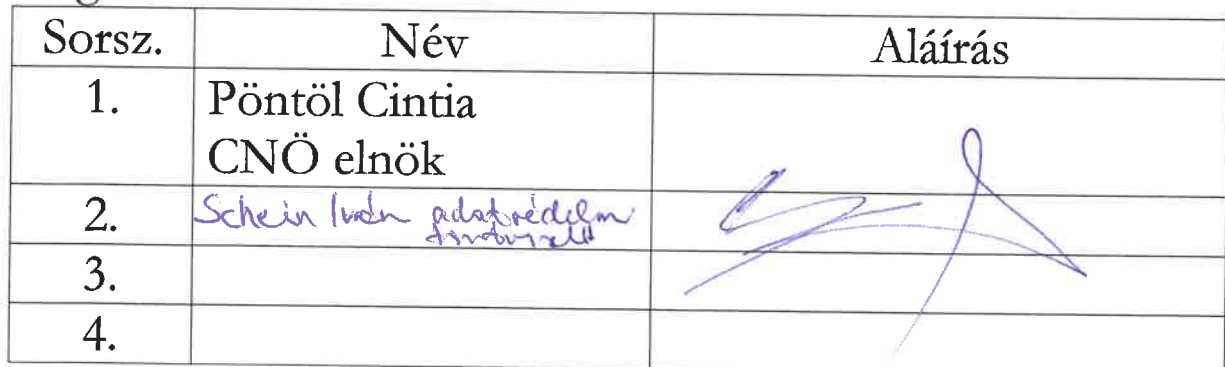 Sorsz. Név Aláírás
1. Pöntöl Cintia
CNÖ elnök
2. Schein Iván adatvédelmi
tisztviselő
3.
4.